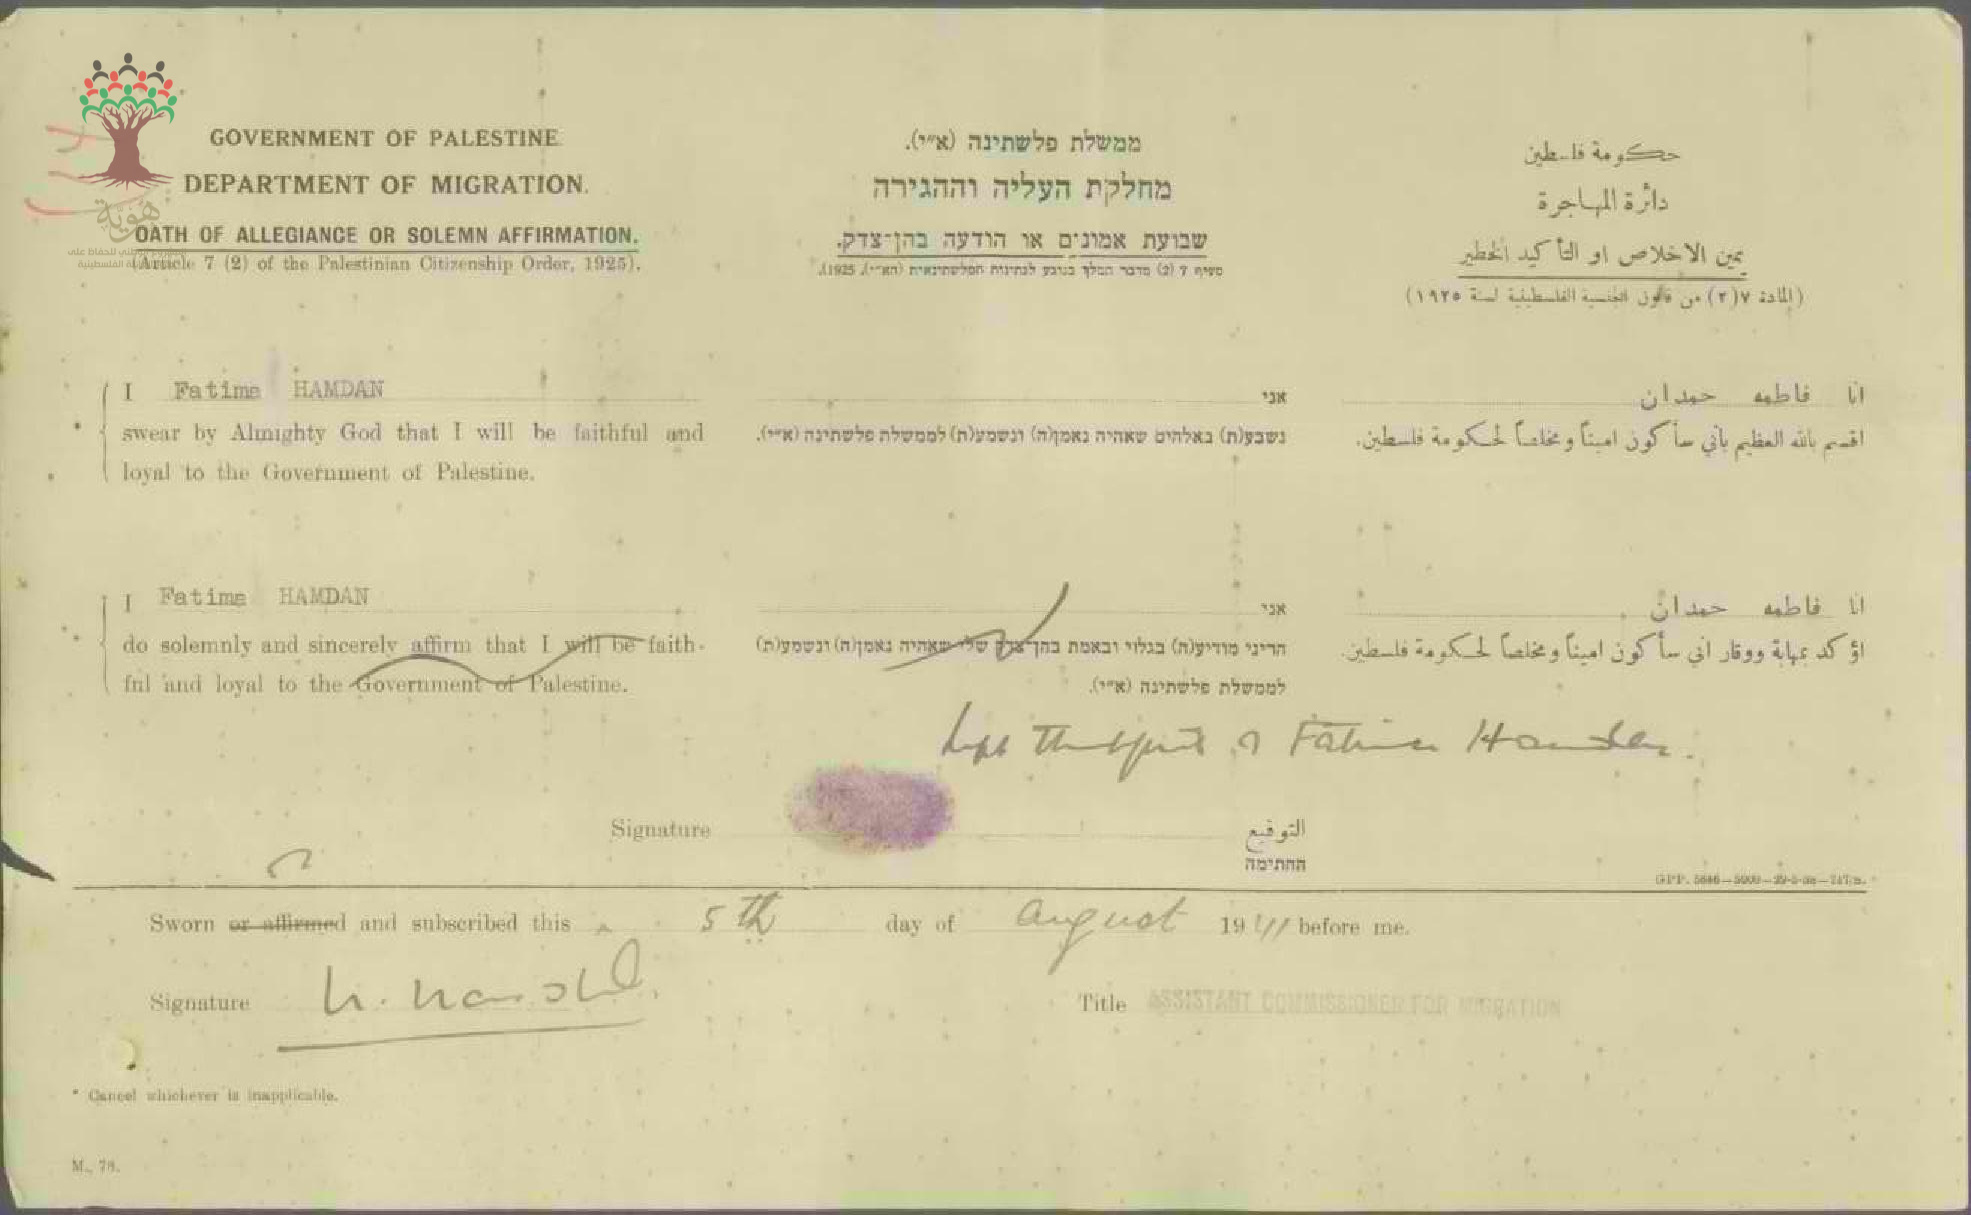 GOVERNMENT OF PALESTINE.
DEPARTMENT OF MIGRATION.
OATH OF ALLEGIANCE OR SOLEMN AFFIRMATION.
(Article 7 (2) of the Palestinian Citizenship Order, 1925).
ממשלת פלשתינה (א״י).
מחלקת העליה וההגירה
שבועת אמונים או הודעה בהן־צדק.
סעיף 7 (2) מדבר המלך בנוגע לנתינות הפלשתינאית (הא״י), 1925).
حكومة فلسطين
دائرة المهاجرة
يمين الاخلاص او التأكيد الخطير
(المادة ٧(٢) من قانون الجنسية الفلسطينية لسنة ١٩٢٥)
هوية
I Fatima HAMDAN
* swear by Almighty God that I will be faithful and
loyal to the Government of Palestine.
אני
נשבע(ת) באלהים שאהיה נאמן(ה) ונשמע(ת) לממשלת פלשתינה (א״י).
انا فاطمه حمدان
اقسم بالله العظيم بأني سأكون اميناً ومخلصاً لحكومة فلسطين.
I Fatima HAMDAN
* do solemnly and sincerely affirm that I will be faith-
ful and loyal to the Government of Palestine.
אני
הריני מודיע(ה) בגלוי ובאמת בהן־צדק שלי שאהיה נאמן(ה) ונשמע(ת)
לממשלת פלשתינה (א״י).
انا فاطمه حمدان
اؤكد بمهابة ووقار اني سأكون اميناً ومخلصاً لحكومة فلسطين.
Thumbprint of Fatima Hamdan.
Signature
التوقيع
החתימה
Sworn or affirmed and subscribed this 5th day of August 1941 before me.
Signature
Title ASSISTANT COMMISSIONER FOR MIGRATION
* Cancel whichever is inapplicable.
M., 78.